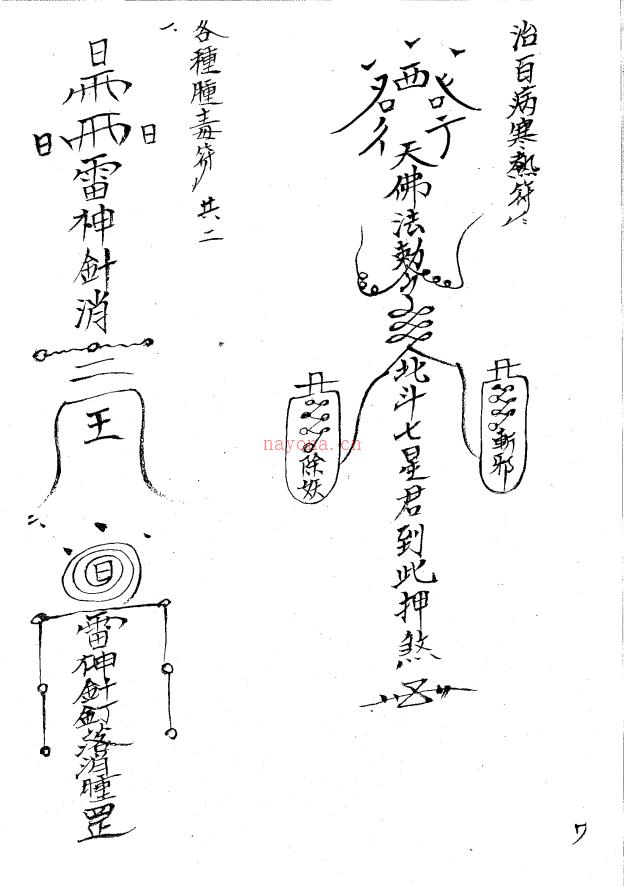 治百病寒熱符
天佛法勅令
北斗七星君到此押煞
斬邪
除妖
各種腫毒符 共二
一、
日
日 日
雷神針消
三
王
二、
日
雷神針釘落消腫罡
nayona.cn
7